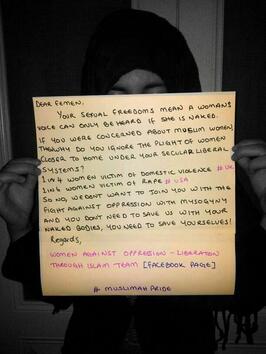 DEAR FEMEN,
YOUR SEXUAL FREEDOMS MEAN A WOMANS
VOICE CAN ONLY BE HEARD IF SHE IS NAKED.
IF YOU WERE CONCERNED ABOUT MUSLIM WOMEN,
THEN WHY DO YOU IGNORE THE PLIGHT OF WOMEN
CLOSER TO HOME UNDER YOUR SECULAR LIBERAL
SYSTEMS?
1 IN 4 WOMEN VICTIM OF DOMESTIC VIOLENCE #UK
1 IN 4 WOMEN VICTIM OF RAPE #USA
SO NO, WE DONT WANT TO JOIN YOU WITH THE
FIGHT AGAINST OPPRESSION WITH MYSOGYNY
AND YOU DONT NEED TO SAVE US WITH YOUR
NAKED BODIES, YOU NEED TO SAVE YOURSELVES!
Regards,
WOMEN AGAINST OPPRESSION - LIBERATION
THROUGH ISLAM TEAM [FACEBOOK PAGE]
# MUSLIMAH PRIDE